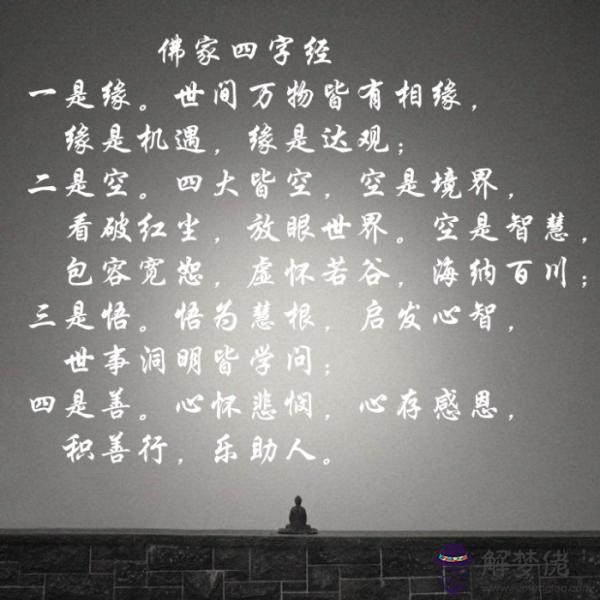 佛家四字经
一是缘。世间万物皆有相缘，
缘是机遇，缘是达观；
二是空。四大皆空，空是境界，
看破红尘，放眼世界。空是智慧，
包容宽恕，虚怀若谷，海纳百川；
三是悟。悟为慧根，启发心智，
世事洞明皆学问；
四是善。心怀悲悯，心存感恩，
积善行，乐助人。
解梦佬